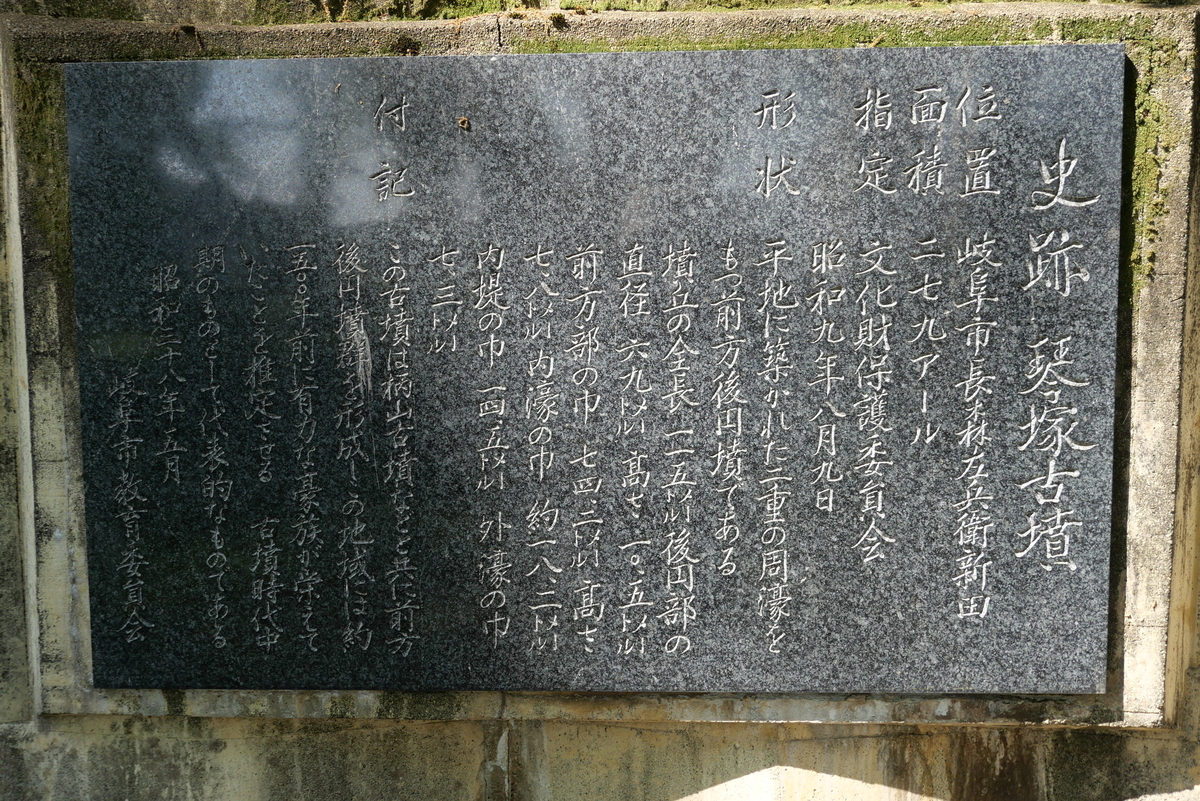 史跡 琴塚古墳
位置 岐阜市長森左兵衛新田
面積 二七九アール
指定 文化財保護委員会
昭和九年八月九日
形状 平地に築かれた二重の周濠を
もつ前方後円墳である
墳丘の全長一一五㍍後円部の
直径 六九㍍ 高さ 一〇・五㍍
前方部の巾 七四・二㍍ 高さ
七・八㍍ 内濠の巾 約一八・二㍍
内堤の巾 一四・五㍍ 外濠の巾
七・三㍍
付記 この古墳は柄山古墳などと共に前方
後円墳群を形成しこの地域には約
一五〇〇年前に有力な豪族が栄えて
いたことを推定させる 古墳時代中
期のものとして代表的なものである
昭和三十八年五月
岐阜市教育委員会